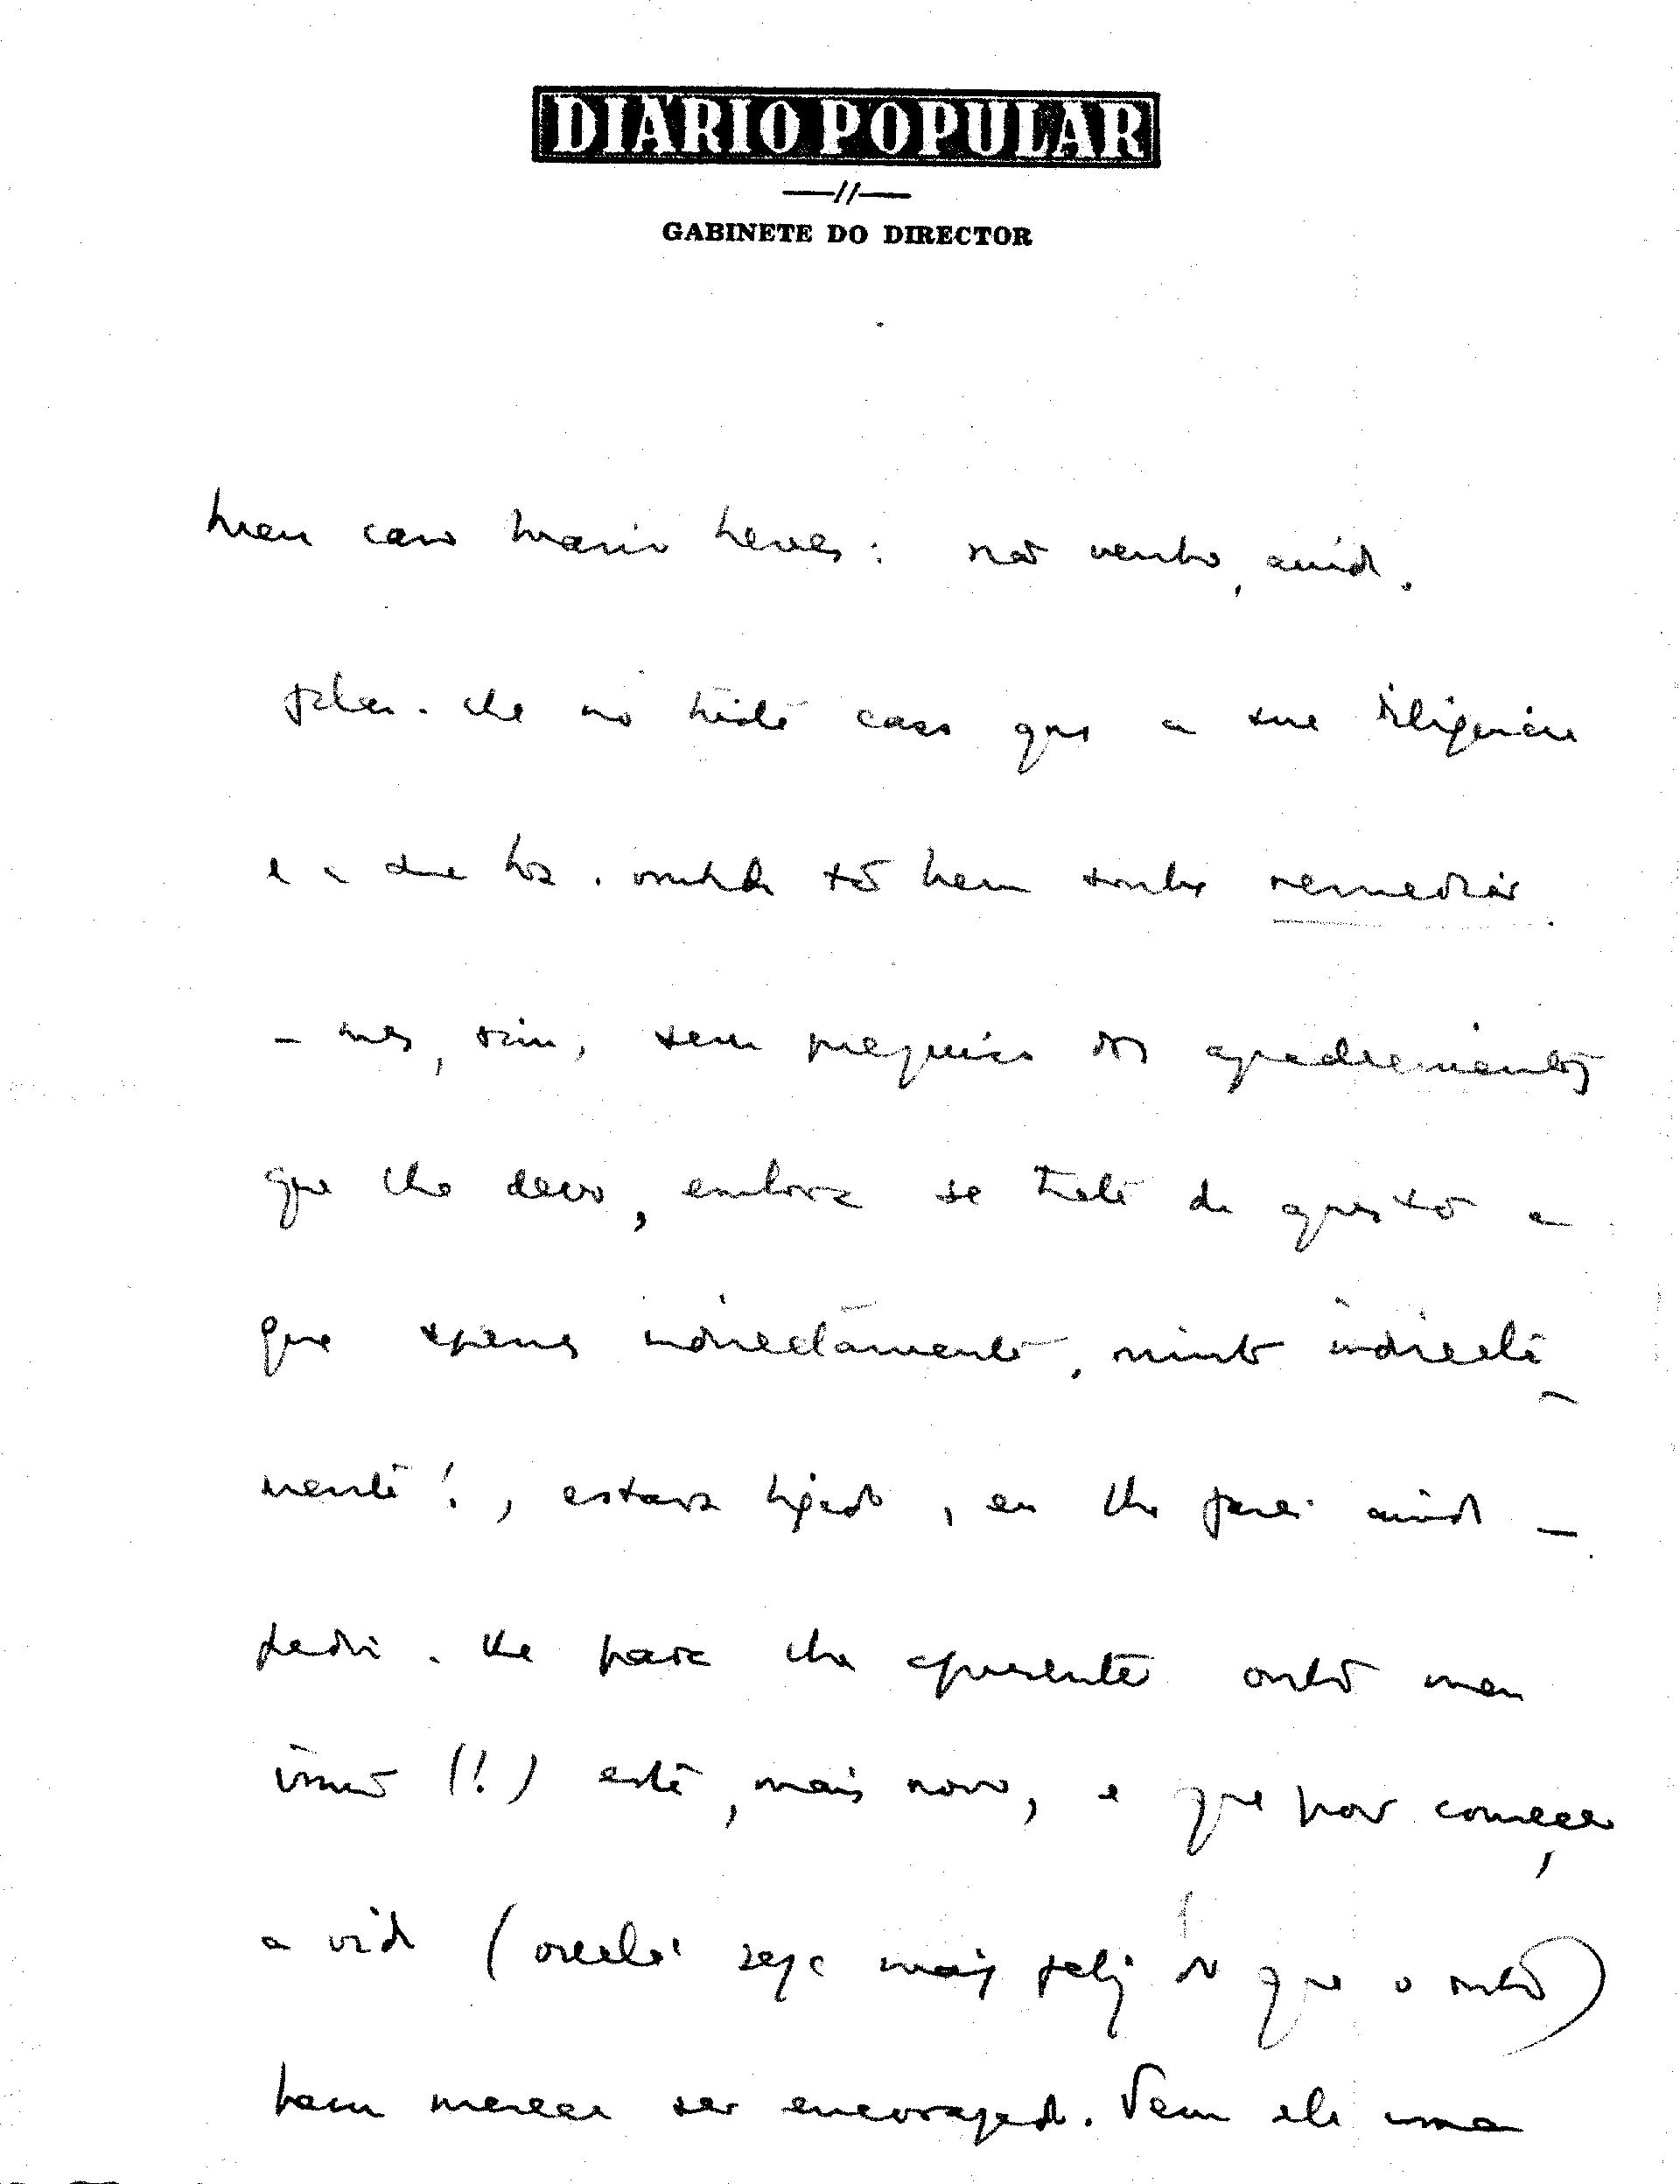 DIÁRIO POPULAR
GABINETE DO DIRECTOR
Meu caro Mário Neves: não venho, ainda,
falar-lhe no triste caso que a sua diligência
e a sua boa vontade tão bem soube remediar
— mas, sim, sem prejuízo dos agradecimentos
que lhe devo, embora se trate de questão a
que apenas indirectamente, muito indirecta-
mente!, estava ligado, eu lhe farei ainda —
pedir-lhe para lhe apresentar outro meu
irmão (!) este, mais novo, e que por começar
a vida (oxalá seja mais feliz do que o outro)
bem merece ser encorajado. Vem ele uma